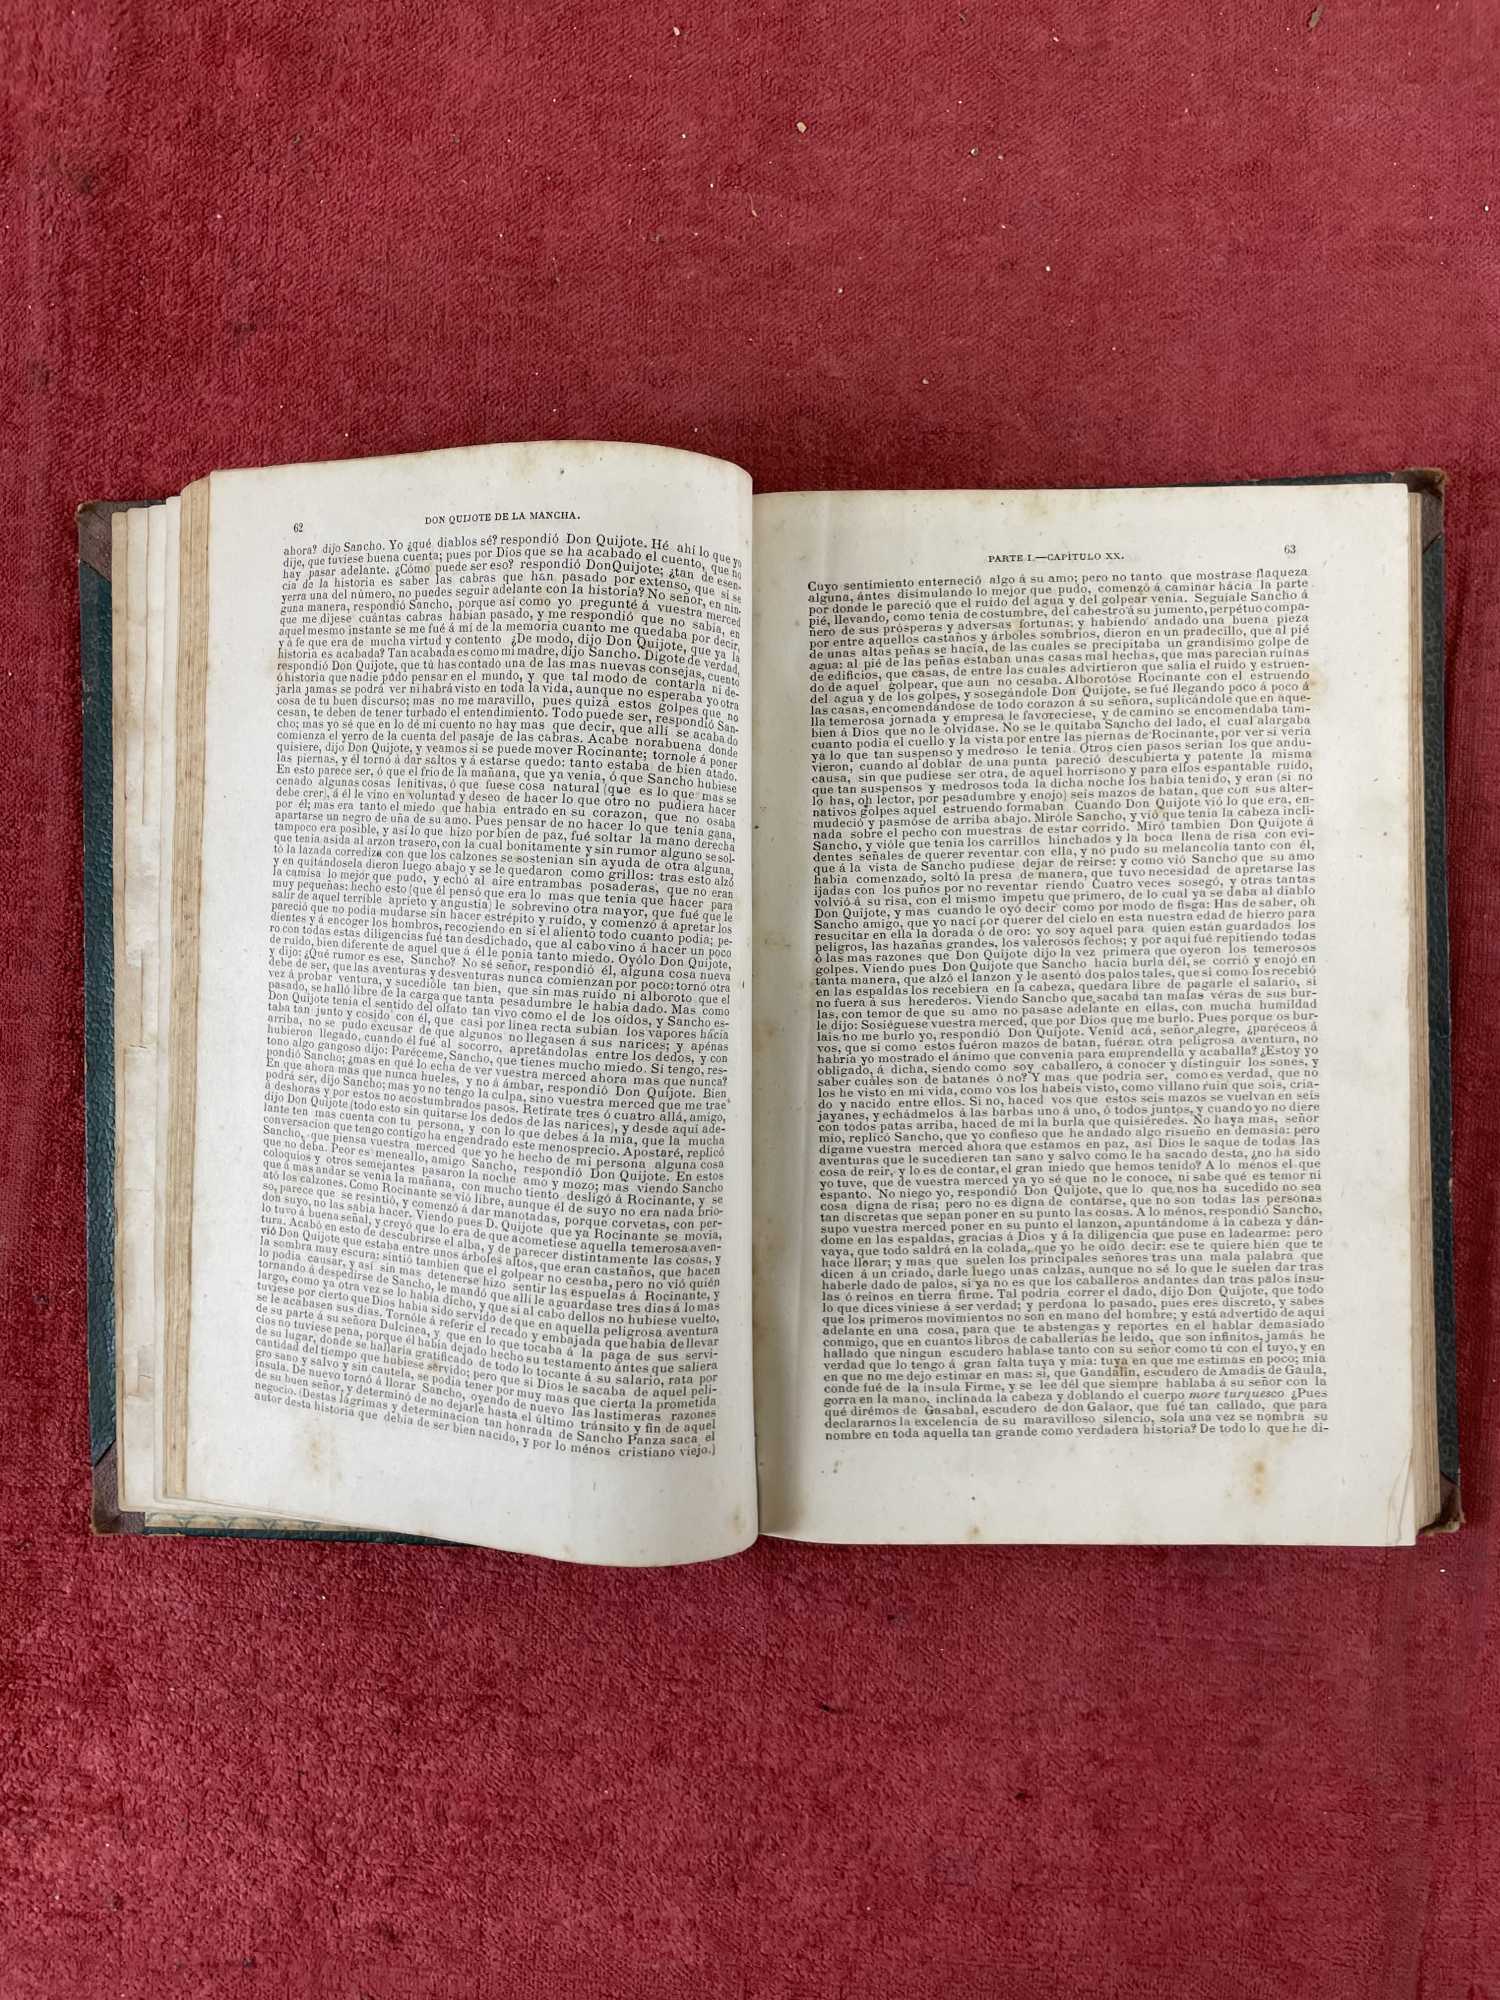 62
DON QUIJOTE DE LA MANCHA.
ahora? dijo Sancho. Yo ¿qué diablos sé? respondió Don Quijote. Hé ahí lo que yo
dije, que tuviese buena cuenta; pues por Dios que se ha acabado el cuento, que no
hay pasar adelante. ¿Cómo puede ser eso? respondió DonQuijote; ¿tan de esen-
cia de la historia es saber las cabras que han pasado por extenso, que si se
yerra una del número, no puedes seguir adelante con la historia? No señor, en nin-
guna manera, respondió Sancho, porque así como yo pregunté á vuestra merced
que me dijese cuántas cabras habian pasado, y me respondió que no sabia, en
aquel mesmo instante se me fué á mí de la memoria cuanto me quedaba por decir,
y á fe que era de mucha virtud y contento ¿De modo, dijo Don Quijote, que ya la
historia es acabada? Tan acabada es como mi madre, dijo Sancho. Dígote de verdad,
respondió Don Quijote, que tú has contado una de las mas nuevas consejas, cuento
ó historia que nadie pudo pensar en el mundo, y que tal modo de contarla ni de-
jarla jamas se podrá ver ni habrá visto en toda la vida, aunque no esperaba yo otra
cosa de tu buen discurso; mas no me maravillo, pues quizá estos golpes que no
cesan, te deben de tener turbado el entendimiento. Todo puede ser, respondió San-
cho; mas yo sé que en lo de mi cuento no hay mas que decir, que allí se acaba do
comienza el yerro de la cuenta del pasaje de las cabras. Acabe norabuena donde
quisiere, dijo Don Quijote, y veamos si se puede mover Rocinante; tornole á poner
las piernas, y él tornó á dar saltos y á estarse quedo: tanto estaba de bien atado.
En esto parece ser, ó que el frio de la mañana, que ya venia, ó que Sancho hubiese
cenado algunas cosas lenitivas, ó que fuese cosa natural (que es lo que mas se
debe crer), á él le vino en voluntad y deseo de hacer lo que otro no pudiera hacer
por él; mas era tanto el miedo que habia entrado en su corazon, que no osaba
apartarse un negro de uña de su amo. Pues pensar de no hacer lo que tenia gana,
tampoco era posible, y así lo que hizo por bien de paz, fué soltar la mano derecha
que tenia asida al arzon trasero, con la cual bonitamente y sin rumor alguno se sol-
tó la lazada corrediza con que los calzones se sostenian sin ayuda de otra alguna,
y en quitándosela dieron luego abajo y se le quedaron como grillos: tras esto alzó
la camisa lo mejor que pudo, y echó al aire entrambas posaderas, que no eran
muy pequeñas: hecho esto (que él pensó que era lo mas que tenia que hacer para
salir de aquel terrible aprieto y angustia) le sobrevino otra mayor, que fué que le
pareció que no podia mudarse sin hacer estrépito y ruido, y comenzó á apretar los
dientes y á encoger los hombros, recogiendo en sí el aliento todo cuanto podia; pe-
ro con todas estas diligencias fué tan desdichado, que al cabo vino á hacer un poco
de ruido, bien diferente de aquel que á él le ponia tanto miedo. Oyólo Don Quijote,
y dijo: ¿Qué rumor es ese, Sancho? No sé señor, respondió él, alguna cosa nueva
debe de ser, que las aventuras y desventuras nunca comienzan por poco: tornó otra
vez á probar ventura, y sucedióle tan bien, que sin mas ruido ni alboroto que el
pasado, se halló libre de la carga que tanta pesadumbre le habia dado. Mas como
Don Quijote tenia el sentido del olfato tan vivo como el de los oidos, y Sancho es-
taba tan junto y cosido con él, que casi por línea recta subian los vapores hácia
arriba, no se pudo excusar de que algunos no llegasen á sus narices; y apénas
hubieron llegado, cuando él fué al socorro, apretándolas entre los dedos, y con
tono algo gangoso dijo: Paréceme, Sancho, que tienes mucho miedo. Sí tengo, res-
pondió Sancho; ¿mas en qué lo echa de ver vuestra merced ahora mas que nunca?
En que ahora mas que nunca hueles, y no á ámbar, respondió Don Quijote. Bien
podrá ser, dijo Sancho; mas yo no tengo la culpa, sino vuestra merced que me trae
á deshoras y por estos no acostumbrados pasos. Retírate tres ó cuatro allá, amigo,
dijo Don Quijote (todo esto sin quitarse los dedos de las narices), y desde aquí ade-
lante ten mas cuenta con tu persona, y con lo que debes á la mia, que la mucha
conversacion que tengo contigo ha engendrado este menosprecio. Apostaré, replicó
Sancho, que piensa vuestra merced que yo he hecho de mi persona alguna cosa
que no deba. Peor es meneallo, amigo Sancho, respondió Don Quijote. En estos
coloquios y otros semejantes pasaron la noche amo y mozo; mas viendo Sancho
que á mas andar se venia la mañana, con mucho tiento desligó á Rocinante, y se
ató los calzones. Como Rocinante se vió libre, aunque él de suyo no era nada brio-
so, parece que se resintió, y comenzó á dar manotadas, porque corvetas, con per-
don suyo, no las sabia hacer. Viendo pues D. Quijote que ya Rocinante se movia,
lo tuvo á buena señal, y creyó que lo era de que acometiese aquella temerosa aven-
tura. Acabó en esto de descubrirse el alba, y de parecer distintamente las cosas, y
vió Don Quijote que estaba entre unos árboles altos, que eran castaños, que hacen
la sombra muy escura: sintió tambien que el golpear no cesaba, pero no vió quién
lo podia causar, y así sin mas detenerse hizo sentir las espuelas á Rocinante, y
tornando á despedirse de Sancho, le mandó que allí le aguardase tres dias á lo mas
largo, como ya otra vez se lo habia dicho, y que si al cabo dellos no hubiese vuelto,
tuviese por cierto que Dios habia sido servido de que en aquella peligrosa aventura
se le acabasen sus dias. Tornóle á referir el recado y embajada que habia de llevar
de su parte á su señora Dulcinea, y que en lo que tocaba á la paga de sus servi-
cios no tuviese pena, porque él habia dejado hecho su testamento ántes que saliera
de su lugar, donde se hallaria gratificado de todo lo tocante á su salario, rata por
cantidad del tiempo que hubiese servido; pero que si Dios le sacaba de aquel peli-
gro sano y salvo y sin cautela, se podia tener por muy mas que cierta la prometida
ínsula. De nuevo tornó á llorar Sancho, oyendo de nuevo las lastimeras razones
de su buen señor, y determinó de no dejarle hasta el último tránsito y fin de aquel
negocio. (Destas lágrimas y determinacion tan honrada de Sancho Panza saca el
autor desta historia que debia de ser bien nacido, y por lo ménos cristiano viejo.)
PARTE I.—CAPÍTULO XX.
63
Cuyo sentimiento enterneció algo á su amo; pero no tanto que mostrase flaqueza
alguna, ántes disimulando lo mejor que pudo, comenzó á caminar hácia la parte
por donde le pareció que el ruido del agua y del golpear venia. Seguíale Sancho á
pié, llevando, como tenia de costumbre, del cabestro á su jumento, perpétuo compa-
ñero de sus prósperas y adversas fortunas; y habiendo andado una buena pieza
por entre aquellos castaños y árboles sombríos, dieron en un pradecillo, que al pié
de unas altas peñas se hacia, de las cuales se precipitaba un grandísimo golpe de
agua: al pié de las peñas estaban unas casas mal hechas, que mas parecian ruinas
de edificios, que casas, de entre las cuales advirtieron que salia el ruido y estruen-
do de aquel golpear, que aun no cesaba. Alborotóse Rocinante con el estruendo
del agua y de los golpes, y sosegándole Don Quijote, se fué llegando poco á poco á
las casas, encomendándose de todo corazon á su señora, suplicándole que en aque-
lla temerosa jornada y empresa le favoreciese, y de camino se encomendaba tam-
bien á Dios que no le olvidase. No se le quitaba Sancho del lado, el cual alargaba
cuanto podia el cuello y la vista por entre las piernas de Rocinante, por ver si veria
ya lo que tan suspenso y medroso le tenia. Otros cien pasos serian los que andu-
vieron, cuando al doblar de una punta pareció descubierta y patente la misma
causa, sin que pudiese ser otra, de aquel horrísono y para ellos espantable ruido,
que tan suspensos y medrosos toda la dicha noche los habia tenido, y eran (si no
lo has, oh lector, por pesadumbre y enojo) seis mazos de batan, que con sus alter-
nativos golpes aquel estruendo formaban Cuando Don Quijote vió lo que era, en-
mudeció y pasmóse de arriba abajo. Miróle Sancho, y vió que tenia la cabeza incli-
nada sobre el pecho con muestras de estar corrido. Miró tambien Don Quijote á
Sancho, y vióle que tenia los carrillos hinchados y la boca llena de risa con evi-
dentes señales de querer reventar con ella, y no pudo su melancolía tanto con él,
que á la vista de Sancho pudiese dejar de reirse: y como vió Sancho que su amo
habia comenzado, soltó la presa de manera, que tuvo necesidad de apretarse las
ijadas con los puños por no reventar riendo Cuatro veces sosegó, y otras tantas
volvió á su risa, con el mismo ímpetu que primero, de lo cual ya se daba al diablo
Don Quijote, y mas cuando le oyó decir como por modo de fisga: Has de saber, oh
Sancho amigo, que yo nací por querer del cielo en esta nuestra edad de hierro para
resucitar en ella la dorada ó de oro: yo soy aquel para quien están guardados los
peligros, las hazañas grandes, los valerosos fechos; y por aquí fué repitiendo todas
ó las mas razones que Don Quijote dijo la vez primera que oyeron los temerosos
golpes. Viendo pues Don Quijote que Sancho hacia burla dél, se corrió y enojó en
tanta manera, que alzó el lanzon y le asentó dos palos tales, que si como los recebió
en las espaldas los recebiera en la cabeza, quedara libre de pagarle el salario, si
no fuera á sus herederos. Viendo Sancho que sacaba tan malas véras de sus bur-
las, con temor de que su amo no pasase adelante en ellas, con mucha humildad
le dijo: Sosiéguese vuestra merced, que por Dios que me burlo. Pues porque os bur-
lais no me burlo yo, respondió Don Quijote. Venid acá, señor alegre, ¿paréceos á
vos, que si como estos fuéron mazos de batan, fueran otra peligrosa aventura, no
habria yo mostrado el ánimo que convenia para emprendella y acaballa? ¿Estoy yo
obligado, á dicha, siendo como soy caballero, á conocer y distinguir los sones, y
saber cuáles son de batanes ó no? Y mas que podria ser, como es verdad, que no
los he visto en mi vida, como vos los habeis visto, como villano ruin que sois, cria-
do y nacido entre ellos. Si no, haced vos que estos seis mazos se vuelvan en seis
jayanes, y echádmelos á las barbas uno á uno, ó todos juntos, y cuando yo no diere
con todos patas arriba, haced de mí la burla que quisiéredes. No haya mas, señor
mio, replicó Sancho, que yo confieso que he andado algo risueño en demasía: pero
dígame vuestra merced ahora que estamos en paz, así Dios le saque de todas las
aventuras que le sucedieren tan sano y salvo como le ha sacado desta, ¿no ha sido
cosa de reir, y lo es de contar, el gran miedo que hemos tenido? A lo ménos el que
yo tuve, que de vuestra merced ya yo sé que no le conoce, ni sabe qué es temor ni
espanto. No niego yo, respondió Don Quijote, que lo que nos ha sucedido no sea
cosa digna de risa; pero no es digna de contarse, que no son todas las personas
tan discretas que sepan poner en su punto las cosas. A lo ménos, respondió Sancho,
supo vuestra merced poner en su punto el lanzon, apuntándome á la cabeza y dán-
dome en las espaldas, gracias á Dios y á la diligencia que puse en ladearme: pero
vaya, que todo saldrá en la colada, que yo he oido decir: ese te quiere bien que te
hace llorar; y mas que suelen los principales señores tras una mala palabra que
dicen á un criado, darle luego unas calzas, aunque no sé lo que le suelen dar tras
haberle dado de palos, si ya no es que los caballeros andantes dan tras palos ínsu-
las ó reinos en tierra firme. Tal podria correr el dado, dijo Don Quijote, que todo
lo que dices viniese á ser verdad; y perdona lo pasado, pues eres discreto, y sabes
que los primeros movimientos no son en mano del hombre; y está advertido de aquí
adelante en una cosa, para que te abstengas y reportes en el hablar demasiado
conmigo, que en cuantos libros de caballerías he leido, que son infinitos, jamás he
hallado que ningun escudero hablase tanto con su señor como tú con el tuyo, y en
verdad que lo tengo á gran falta tuya y mia: tuya en que me estimas en poco; mia
en que no me dejo estimar en mas: sí, que Gandalin, escudero de Amadis de Gaula,
conde fué de la ínsula Firme, y se lee dél que siempre hablaba á su señor con la
gorra en la mano, inclinada la cabeza y doblando el cuerpo more turquesco ¿Pues
qué dirémos de Gasabal, escudero de don Galaor, que fué tan callado, que para
declararnos la excelencia de su maravilloso silencio, sola una vez se nombra su
nombre en toda aquella tan grande como verdadera historia? De todo lo que he di-